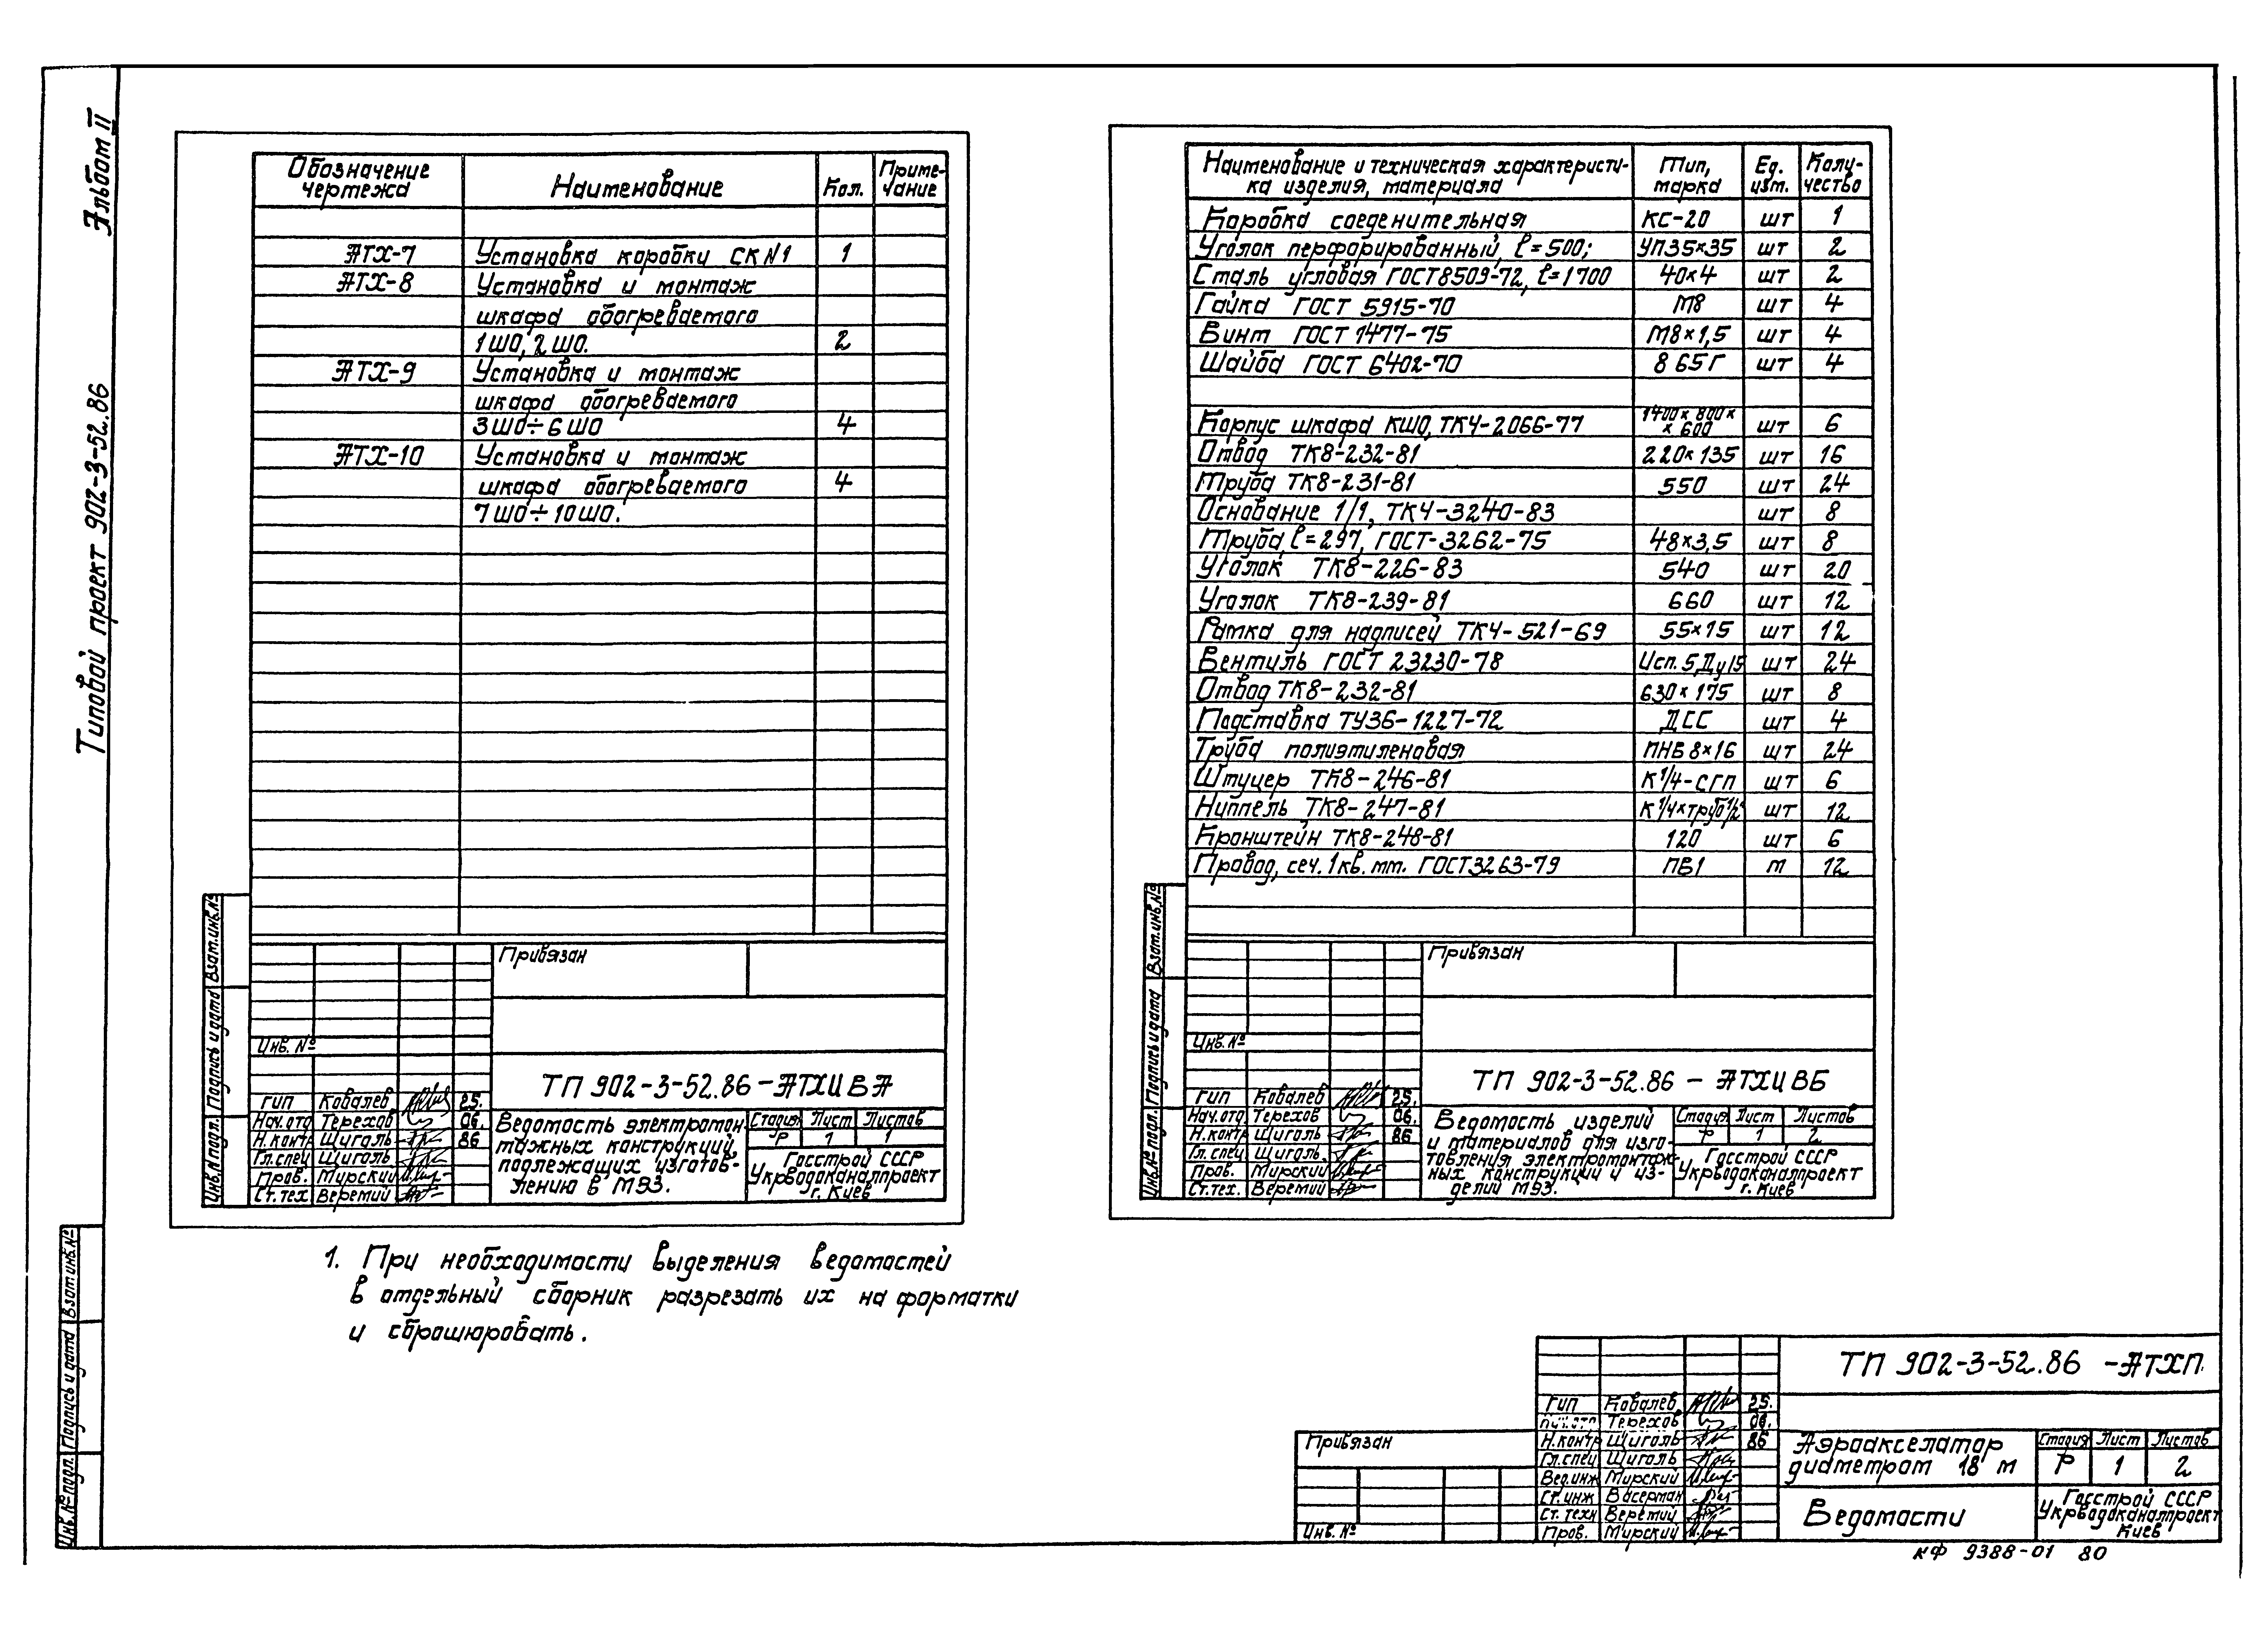 Альбом II
Типовой проект 902-3-52.86
Обозначение чертежа | Наименование | Кол. | Примечание
АТХ-7 | Установка коробки СК N1 | 1
АТХ-8 | Установка и монтаж
шкафа обогреваемого
1ШО, 2ШО. | 2
АТХ-9 | Установка и монтаж
шкафа обогреваемого
3ШО÷6ШО | 4
АТХ-10 | Установка и монтаж
шкафа обогреваемого | 4
7ШО÷10ШО.
Привязан
Инв. №
ТП 902-3-52.86-АТХИ ВА
ГИП Ковалев 25.
Нач.отд Терехов 06.
Н.контр Щиголь 86
Гл.спец Щиголь
Пров. Мирский
Ст.тех Веремий
Ведомость электромон-
тажных конструкций,
подлежащих изготов-
лению в МЭЗ.
Стадия Лист Листов
Р 1 1
Госстрой СССР
Укрводоканалпроект
г. Киев
Инв.№ подл. Подпись и дата Взам.инв.№
1. При необходимости выделения ведомостей
в отдельный сборник разрезать их на форматки
и сброшюровать.
Наименование и техническая характеристи-
ка изделия, материала | Тип, марка | Ед. изм. | Коли-чество
Коробка соеденительная | КС-20 | шт | 1
Уголок перфорированный, ℓ=500; | УП35×35 | шт | 2
Сталь угловая ГОСТ8509-72, ℓ=1700 | 40×4 | шт | 2
Гайка ГОСТ 5915-70 | М8 | шт | 4
Винт ГОСТ 1477-75 | М8×1,5 | шт | 4
Шайба ГОСТ 6402-70 | 8 65Г | шт | 4
Корпус шкафа КШО, ТК4-2066-77 | 1400×800××600 | шт | 6
Отвод ТК8-232-81 | 220×135 | шт | 16
Труба ТК8-231-81 | 550 | шт | 24
Основание 1/1, ТК4-3240-83 | шт | 8
Труба, ℓ=297, ГОСТ-3262-75 | 48×3,5 | шт | 8
Уголок ТК8-226-83 | 540 | шт | 20
Уголок ТК8-239-81 | 660 | шт | 12
Рамка для надписей ТК4-521-69 | 55×15 | шт | 12
Вентиль ГОСТ 23230-78 | Исп. 5, Ду15 | шт | 24
Отвод ТК8-232-81 | 630×175 | шт | 8
Подставка ТУ36-1227-72 | ДСС | шт | 4
Труба полиэтиленовая | ПНБ 8×16 | шт | 24
Штуцер ТК8-246-81 | К 1/4-СГП | шт | 6
Ниппель ТК8-247-81 | К 1/4×труб 1/2" | шт | 12
Кронштейн ТК8-248-81 | 120 | шт | 6
Провод, сеч. 1кв.мм. ГОСТ3263-79 | ПВ1 | м | 12
Привязан
Инв. №
ТП 902-3-52.86 - АТХИ ВБ
ГИП Ковалев 25.
Нач.отд Терехов 06.
Н.контр Щиголь 86
Гл.спец Щиголь
Пров. Мирский
Ст.тех. Веремий
Ведомость изделий
и материалов для изго-
товления электромонтаж-
ных конструкций и из-
делий МЭЗ.
Стадия Лист Листов
Р 1 2
Госстрой СССР
Укрводоканалпроект
г. Киев
Инв.№ подл. Подпись и дата Взам.инв.№
ТП 902-3-52.86 -АТХП.
ГИП Ковалев 25.
Нач.отд Терехов 06.
Н.контр Щиголь 86
Гл.спец Щиголь
Вед.инж Мирский
Ст.инж Васерман
Ст.техн Веремий
Пров. Мирский
Аэроакселатор
диаметром 18 м
Стадия Лист Листов
Р 1 2
Ведомости
Госстрой СССР
Укрводоканалпроект
Киев
Привязан
Инв. №
Инв.№ подл. Подпись и дата Взам.инв.№
КФ 9388-01 80